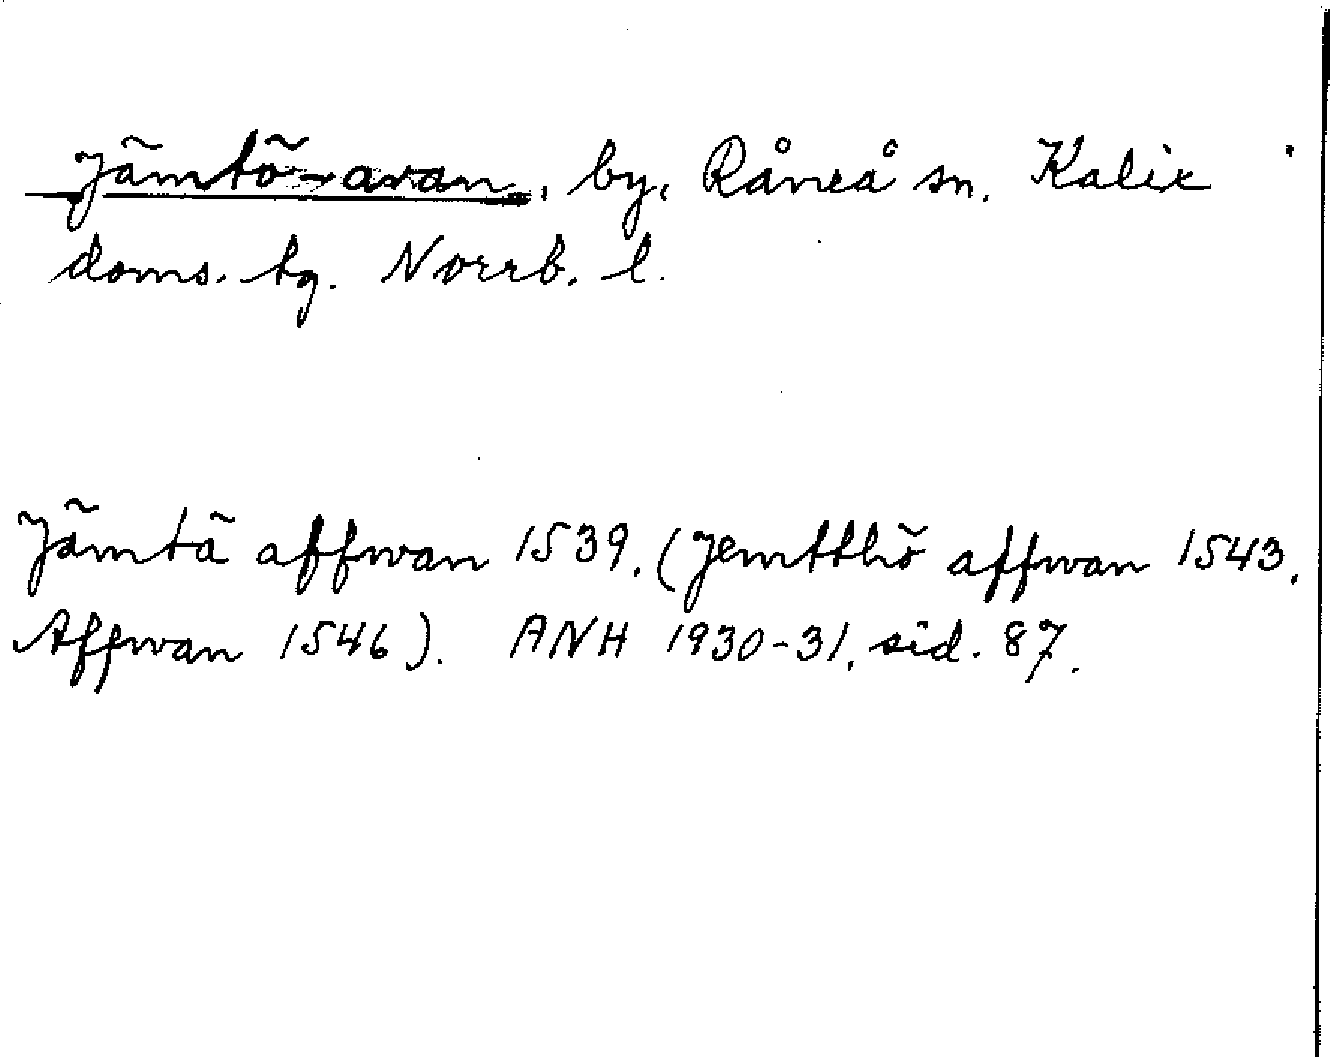 Jämtö-avan, by, Råneå sn. Kalix
doms. tg. Norrb. l.
Jämtä affwan 1539. (Jemtthö affwan 1543,
Affwan 1546). ANH 1930-31, sid. 87.